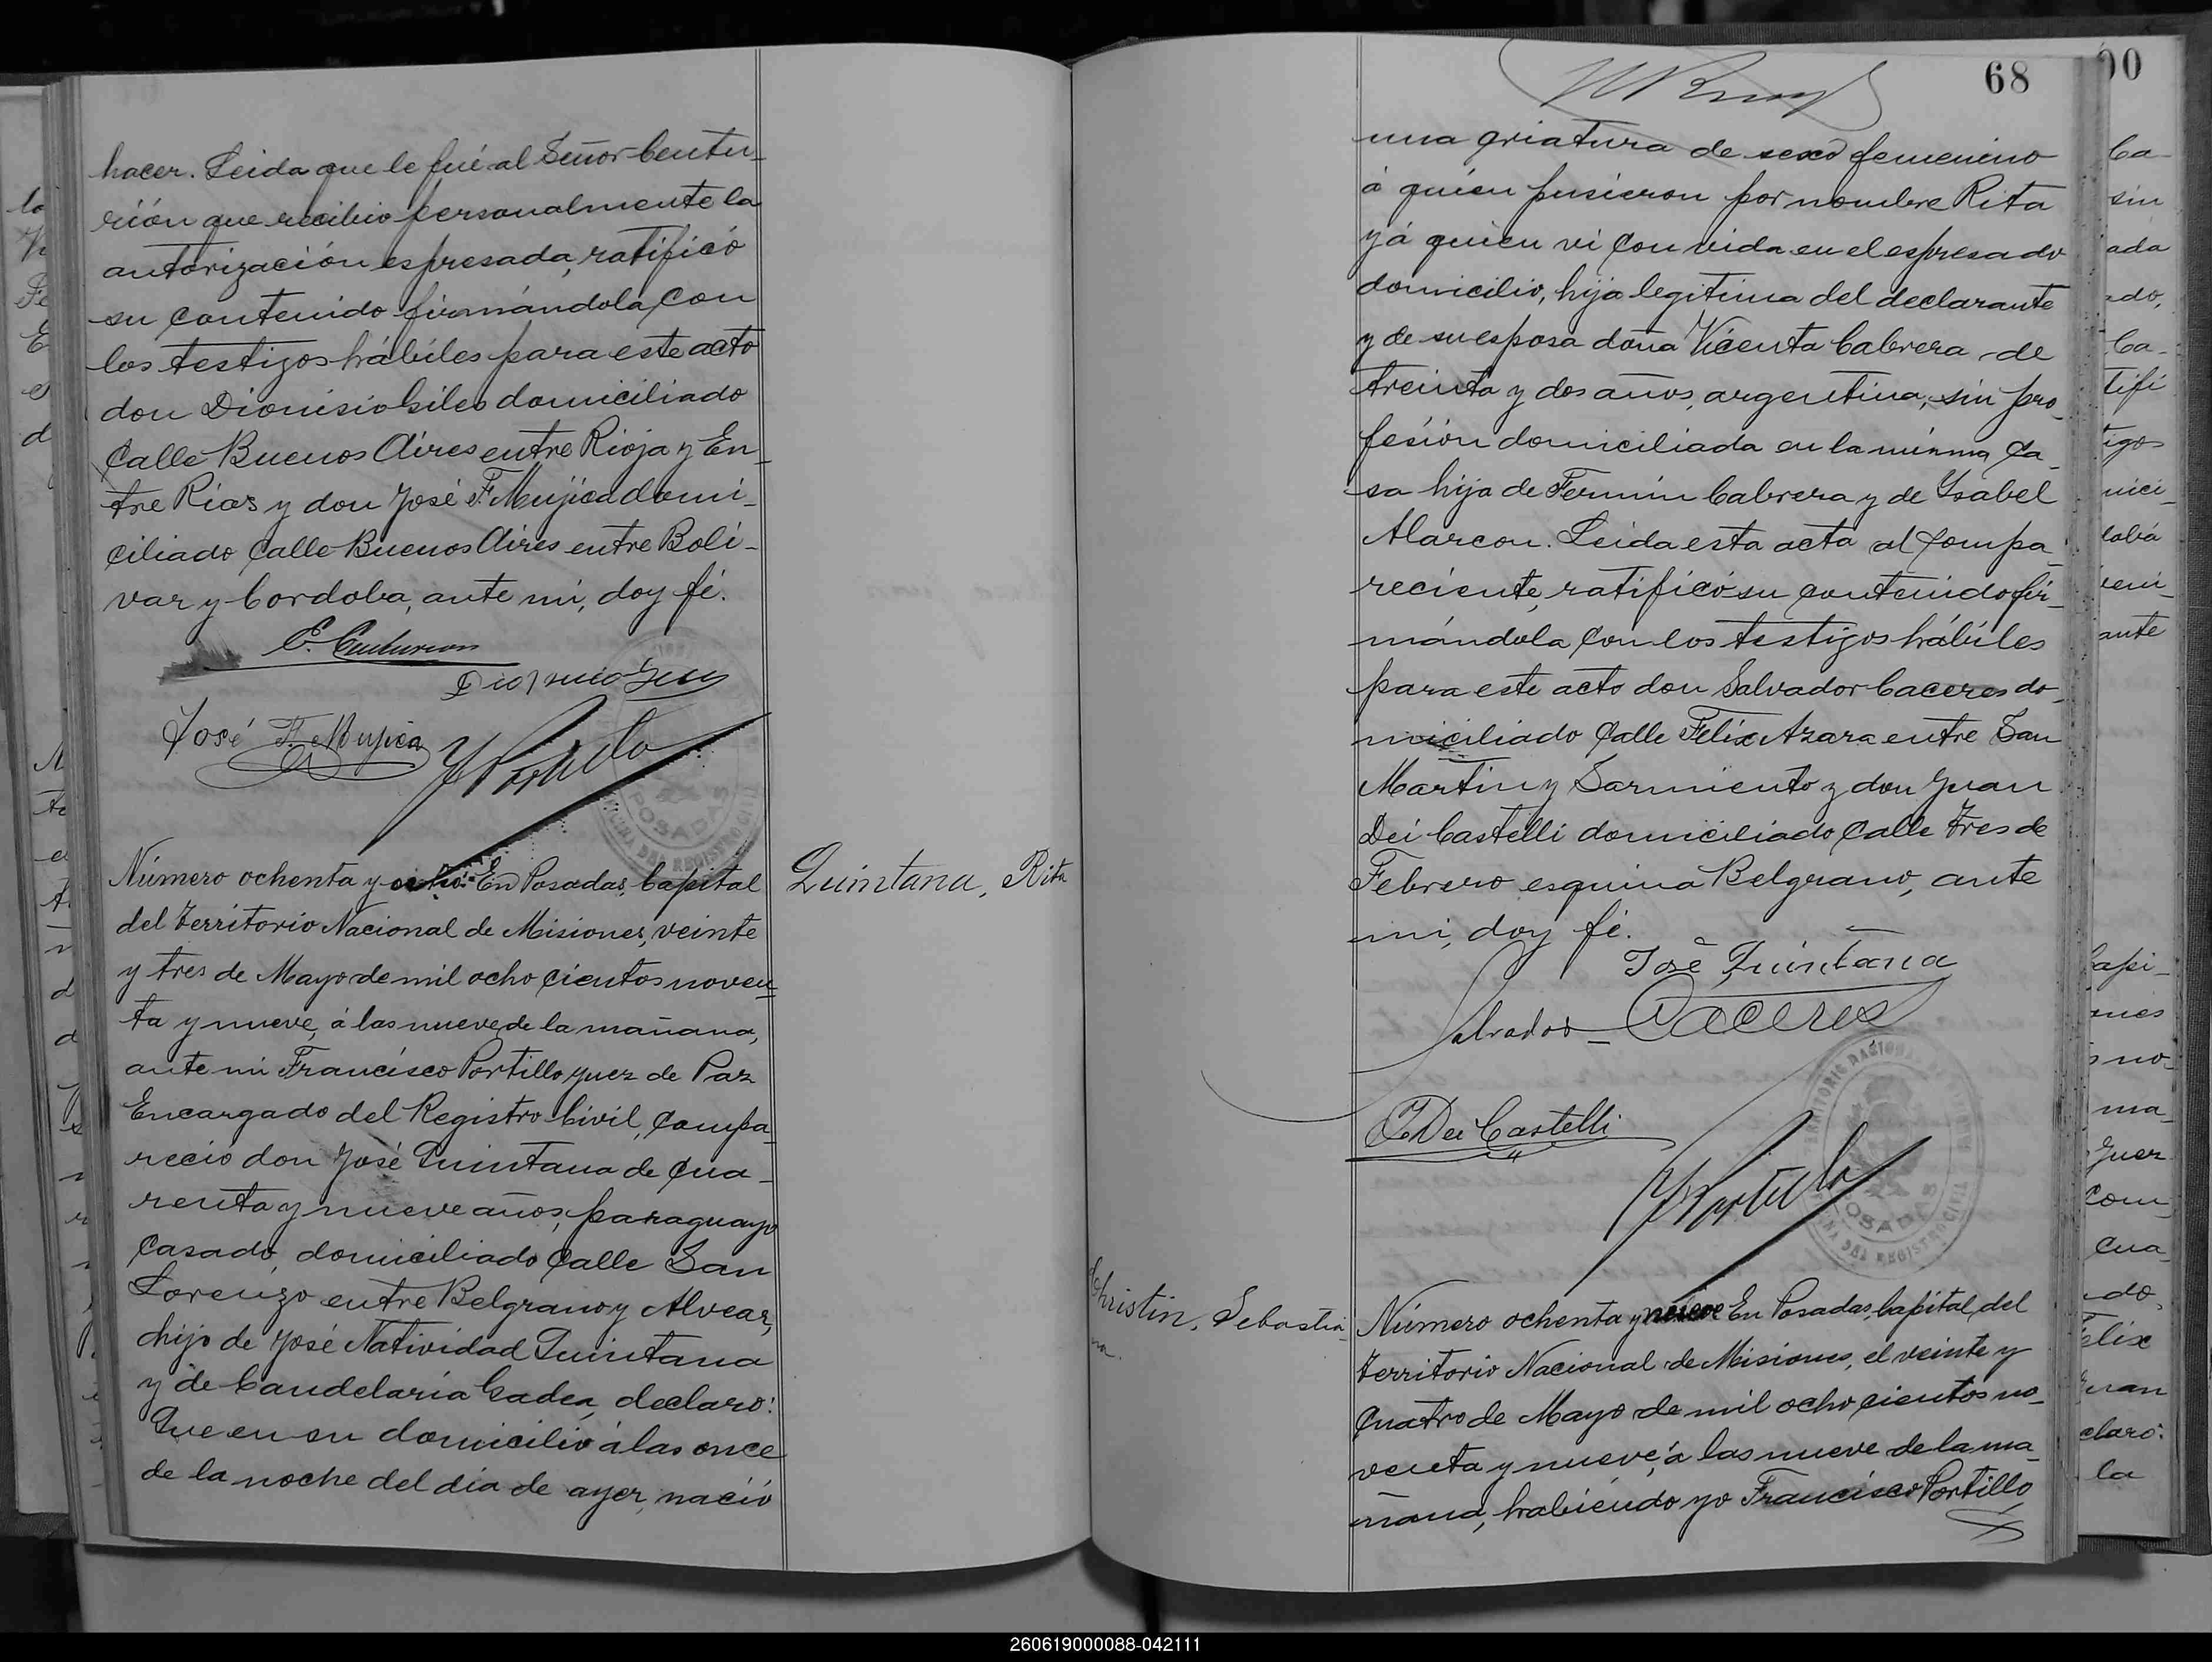 hacer. Leida que le fué al Señor Centu-
rión que recibio personalmente la
autorización espresada, ratificó
su contenido firmándola con
los testigos hábiles para este acto
don Dionisio Giles domiciliado
Calle Buenos Aires entre Rioja y En-
tre Rios y don José F. Mujica domi-
ciliado Calle Buenos Aires entre Boli-
var y Cordoba, ante mi, doy fé.
E. Centurion
José F. Mujica
POSADAS
Número ochenta y ocho: En Posadas, Capital
del Territorio Nacional de Misiones, veinte
y tres de Mayo de mil ocho cientos noven-
ta y nueve, á las nueve de la mañana,
ante mi Francisco Portillo Juez de Paz
Encargado del Registro Civil, compa-
reció don José Quintana de cua-
renta y nueve años, paraguayo
casado, domiciliado Calle San
Lorenzo entre Belgrano y Alvear,
hijo de José Natividad Quintana
y de Candelaria Gadea, declaró:
Que en su domicilio á las once
de la noche del dia de ayer, nació
Quintana, Rita
68
una criatura de sexo femenino
á quien pusieron por nombre Rita
y á quien vi con vida en el espresado
domicilio, hija legitima del declarante
y de su esposa doña Vicenta Cabrera, de
treinta y dos años, argentina, sin pro-
fesión domiciliada en la misma ca-
sa hija de Fermin Cabrera y de Ysabel
Alarcon. Leida esta acta al compa-
reciente, ratificó su contenido fir-
mándola con los testigos hábiles
para este acto don Salvador Caceres do-
miciliado Calle Felix Azara entre San
Martin y Sarmiento y don Juan
Dei Castelli domiciliado Calle Tres de
Febrero esquina Belgrano, ante
mi, doy fé.
José Quintana
Salvador Caceres
J. Dei Castelli
F. Portillo
POSADAS
Christin, Sebastia-
na.
Número ochenta y nueve En Posadas, Capital del
Territorio Nacional de Misiones, el veinte y
cuatro de Mayo de mil ocho cientos no-
venta y nueve, á las nueve de la ma-
ñana, habiendo yo Francisco Portillo
260619000088-042111